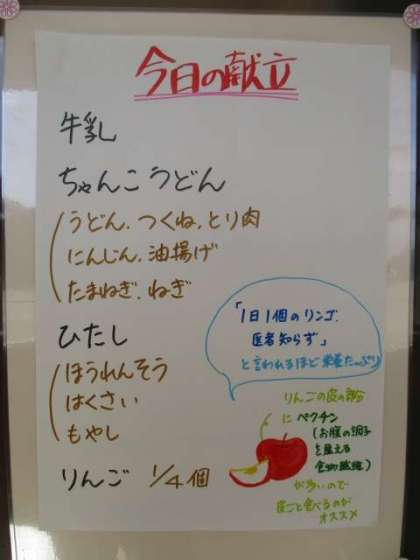 今日の献立
牛乳
ちゃんこうどん
うどん、つくね、とり肉
にんじん、油揚げ
たまねぎ、ねぎ
ひたし
ほうれんそう
はくさい
もやし
りんご 1/4個
「1日1個のリンゴ、
医者知らず」
と言われるほど栄養たっぷり
りんごの皮の部分
に ペクチン
(お腹の調子
を整える
食物繊維)
が多いので
皮ごと食べるのが
オススメ